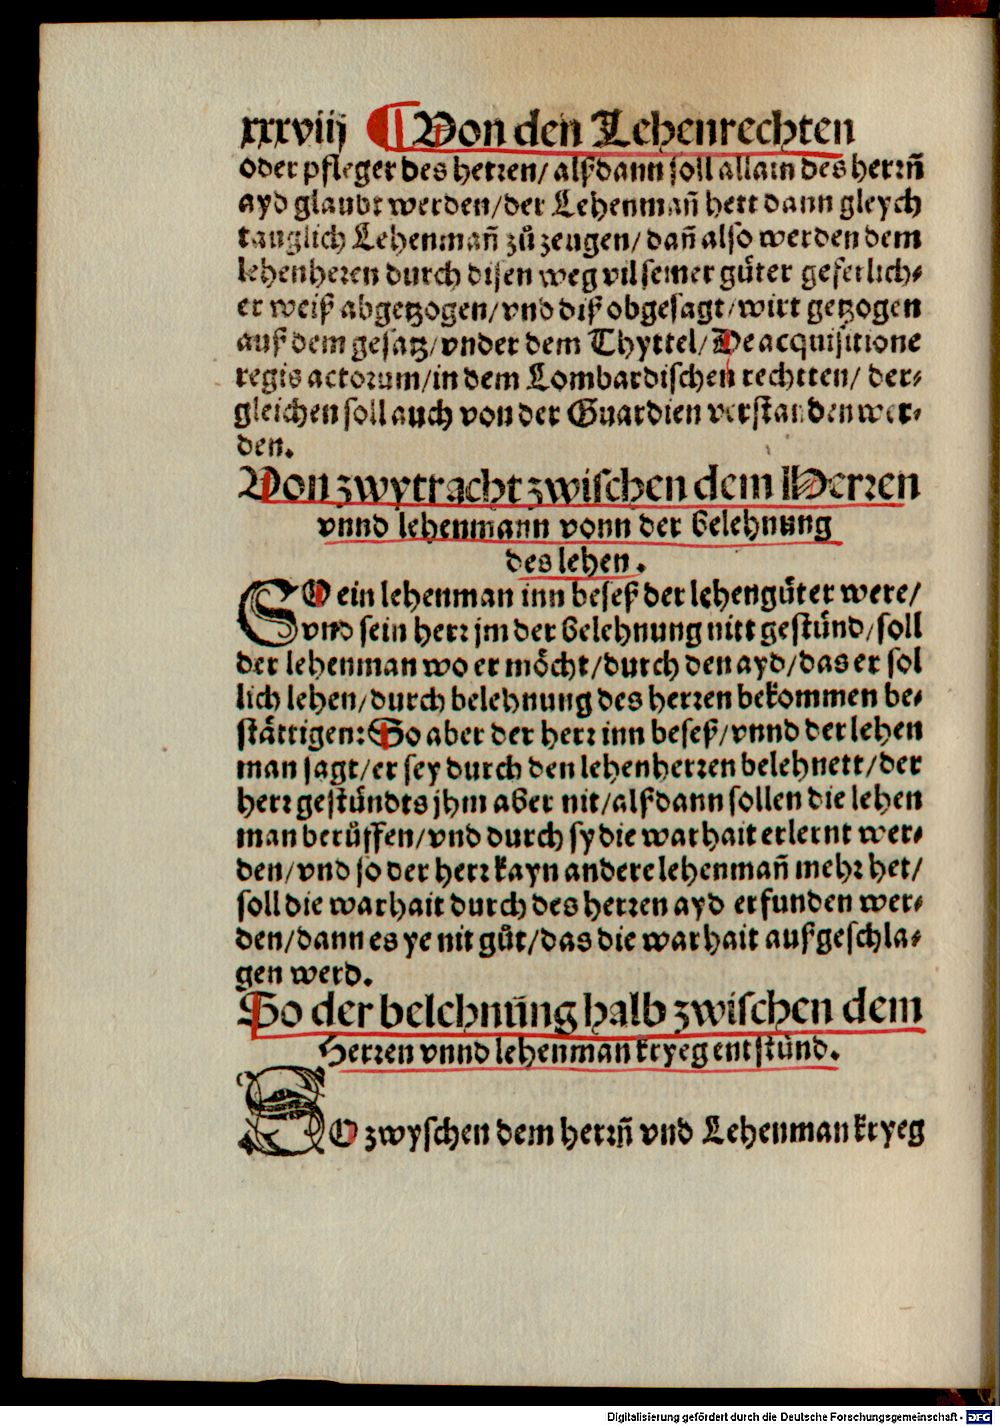 xxxviij ¶ Von den Lehenrechten
oder pfleger des herren/ alßdann soll allain des herrñ
ayd glaubt werden/der Lehenmañ hett dann gleych
tauglich Lehenmañ zů zeugen/ dañ also werden dem
lehenherren durch disen weg vil seiner gůter geferlich⸗
er weiß abgetzogen/vnd diß obgesagt/wirt getzogen
auß dem gesatz/vnder dem Thyttel/ De acquisitione
regis actorum/in dem Lombardischen rechtten/ der⸗
gleichen soll auch von der Guardien verstanden wer⸗
den.
Von zwytracht zwischen dem Herren
vnnd lehenmann vonn der belehnung
des lehen.
SO ein lehenman inn beseß der lehengůter were/
vnd sein herr jm der belehnung nitt gestünd/soll
der lehenman wo er möcht/durch den ayd/das er sol
lich lehen/durch belehnung des herren bekommen be⸗
stättigen: So aber der herr inn beseß/vnnd der lehen
man sagt/er sey durch den lehenherren belehnett/der
herr gestündts jhm aber nit/alßdann sollen die lehen
man berůffen/vnd durch sy die warhait erlernt wer⸗
den/vnd so der herr kayn andere lehenmañ mehr het/
soll die warhait durch des herren ayd erfunden wer⸗
den/dann es ye nit gůt/das die warhait außgeschla⸗
gen werd.
So der belehnūng halb zwischen dem
Herren vnnd lehenman kryeg entstünd.
SO zwyschen dem herrñ vnd Lehenman kryeg
Digitalisierung gefördert durch die Deutsche Forschungsgemeinschaft - DFG